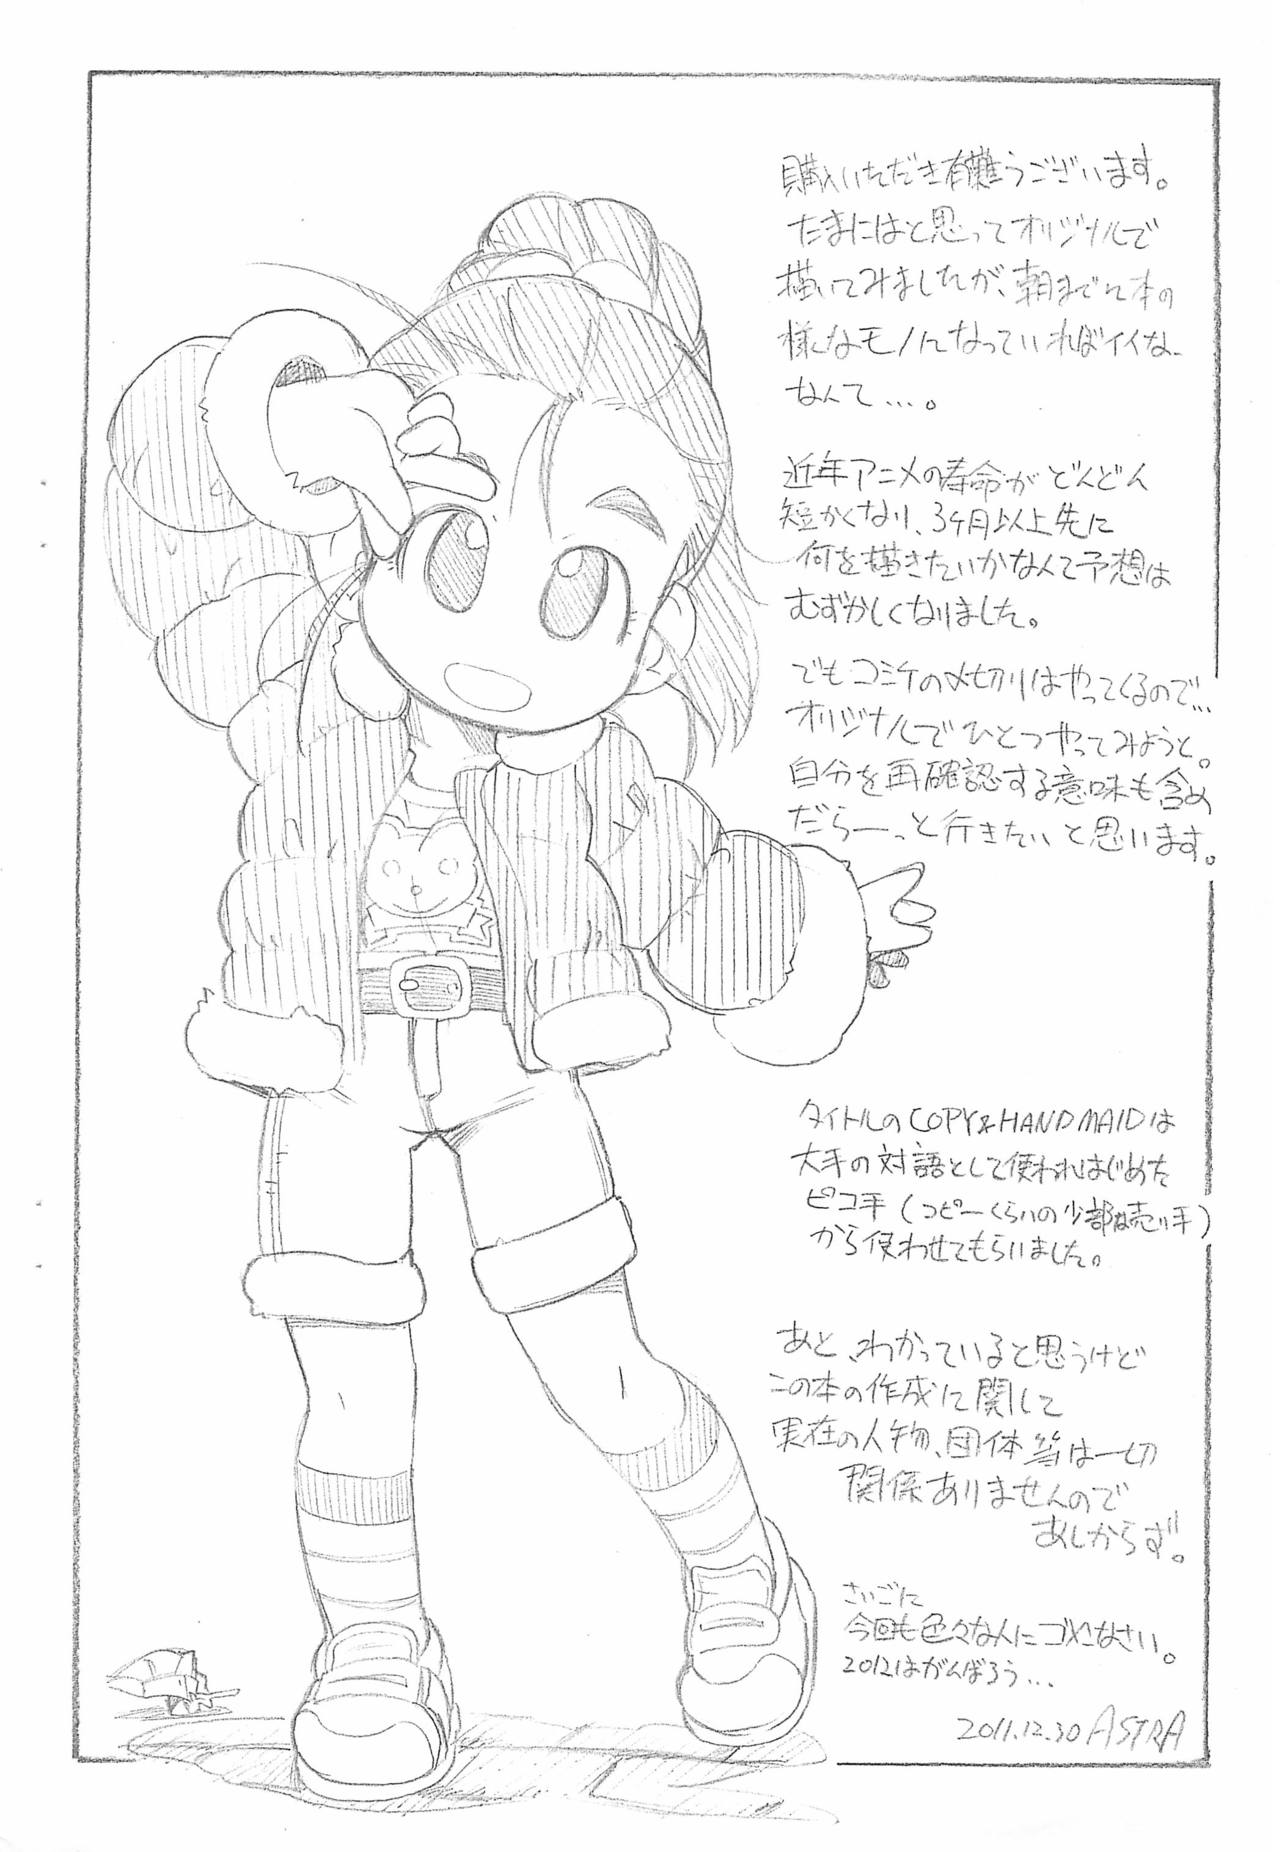 購入いただき有難うございます。
たまにはと思ってオリジナルで
描いてみましたが、朝までに本の
様なモノになっていればイイな-
なんて…。
近年アニメの寿命がどんどん
短かくなり、3ヶ月以上先に
何を描きたいかなんて予想は
むずかしくなりました。
でもコミケの〆切りはやってくるので…
オリジナルでひとつやってみようと。
自分を再確認する意味も含め
だらーっと行きたいと思います。
タイトルのCOPY&HANDMAIDは
大手の対語として使われはじめた
ピコ手(コピーくらいの少部数売り手)
から使わせてもらいました。
あと、わかっていると思うけど
この本の作成に関して
実在の人物、団体等は一切
関係ありませんので
あしからず。
さいごに
今回も色々な人にゴメンなさい。
2012はがんばろう…
2011.12.30 ASTRA